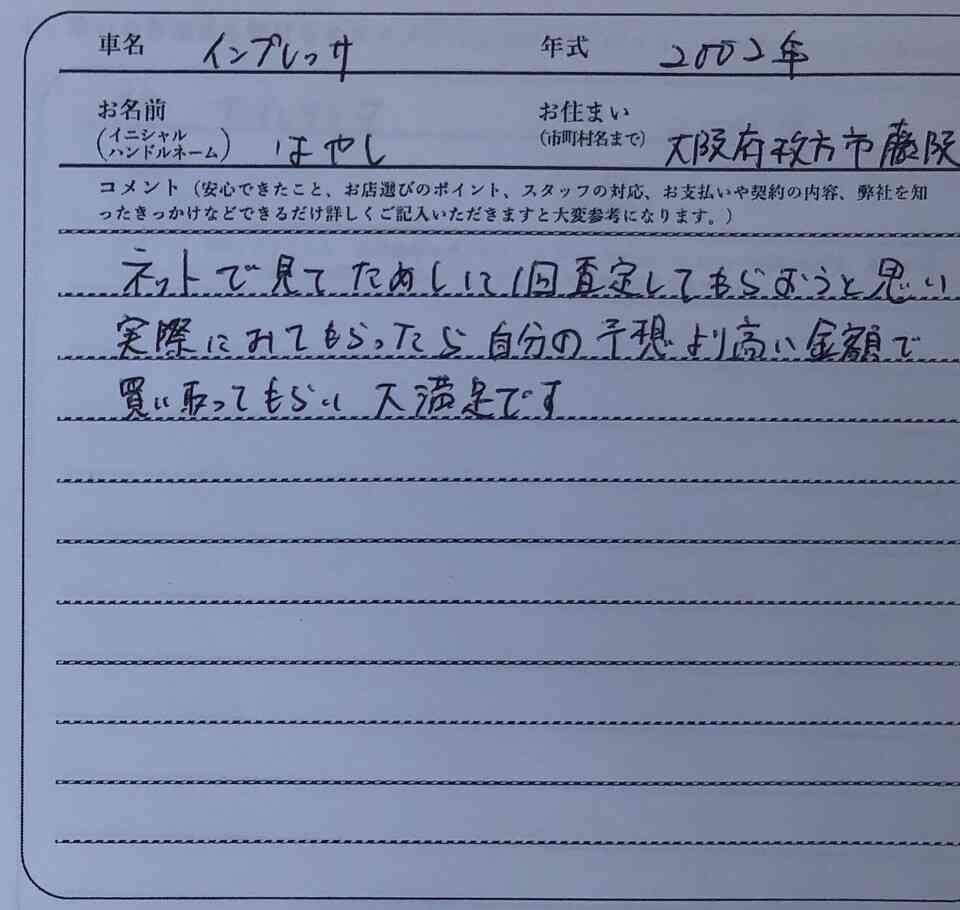 車名 インプレッサ 年式 2002年
お名前 お住まい
(イニシャル ハンドルネーム) はやし (市町村名まで) 大阪府枚方市藤阪
コメント（安心できたこと、お店選びのポイント、スタッフの対応、お支払いや契約の内容、弊社を知
ったきっかけなどできるだけ詳しくご記入いただきますと大変参考になります。）
ネットで見てためしに1回査定してもらおうと思い
実際にみてもらったら自分の予想より高い金額で
買い取ってもらい大満足です